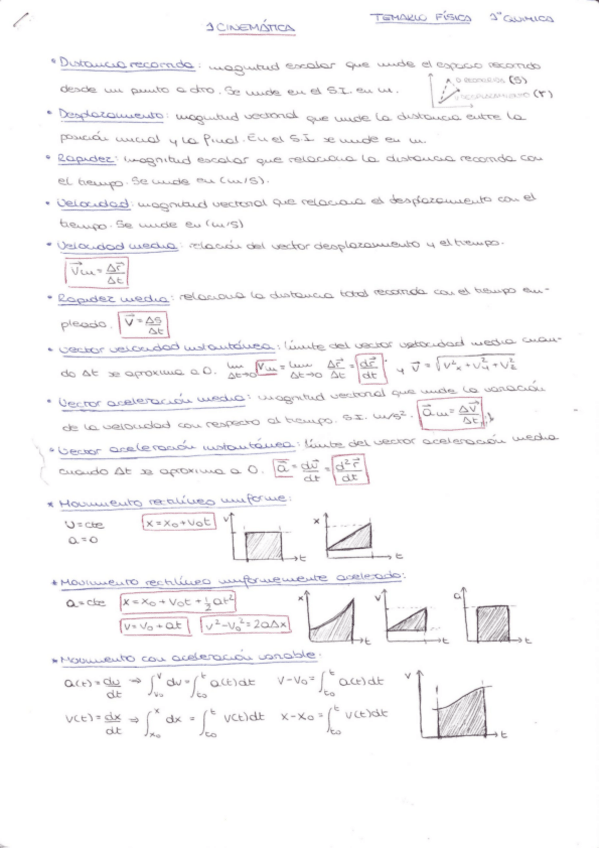 TEMARIO FÍSICA 1º QUIMICA
1 CINEMÁTICA
• Distancia recorrida: magnitud escalar que mide el espacio recorrido
desde un punto a otro. Se mide en el S.I. en m.
D RECORRIDA (S)
DESPLAZAMIENTO (r)
• Desplazamiento: magnitud vectorial que mide la distancia entre la
posición inicial y la final. En el S.I se mide en m.
• Rapidez: magnitud escalar que relaciona la distancia recorrida con
el tiempo. Se mide en (m/s).
• Velocidad: magnitud vectorial que relaciona el desplazamiento con el
tiempo. Se mide en (m/s)
• Velocidad media: relación del vector desplazamiento y el tiempo.
V⃗m = Δr⃗/Δt
• Rapidez media: relaciona la distancia total recorrida con el tiempo em-
pleado. V⃗ = ΔS/Δt
• Vector velocidad instantánea: límite del vector velocidad media cuan-
do Δt se aproxima a 0. lim Δt→0 V⃗m = lim Δt→0 Δr⃗/Δt = dr⃗/dt y V⃗ = √(V²x + V²y + V²z)
• Vector aceleración media: magnitud vectorial que mide la variación
de la velocidad con respecto al tiempo. S.I. m/s². a⃗m = ΔV⃗/Δt
• Vector aceleración instantánea: límite del vector aceleración media
cuando Δt se aproxima a 0. a⃗ = dv⃗/dt = d²r⃗/dt
* Movimiento rectilíneo uniforme:
V = cte x = x₀ + v₀t V t x t
a = 0
* Movimiento rectilíneo uniformemente acelerado:
a = cte x = x₀ + v₀t + ½at² x t v t a t
v = v₀ + at v² - v₀² = 2aΔx
* Movimiento con aceleración variable:
a(t) = dv/dt ⇒ ∫v₀^v dv = ∫t₀^t a(t)dt v - v₀ = ∫t₀^t a(t)dt V t
v(t) = dx/dt ⇒ ∫x₀^x dx = ∫t₀^t v(t)dt x - x₀ = ∫t₀^t v(t)dt